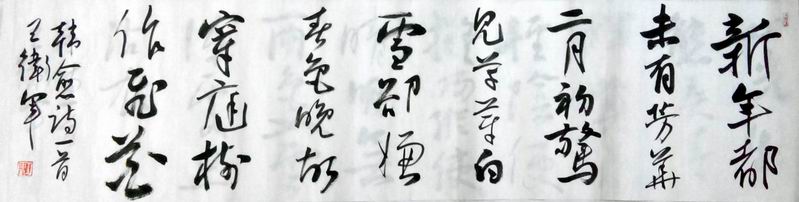 新年都
未有芳華
二月初驚
見草芽白
雪卻嫌
春色晚故
穿庭樹
作飛花
韓愈詩一首
王衛軍